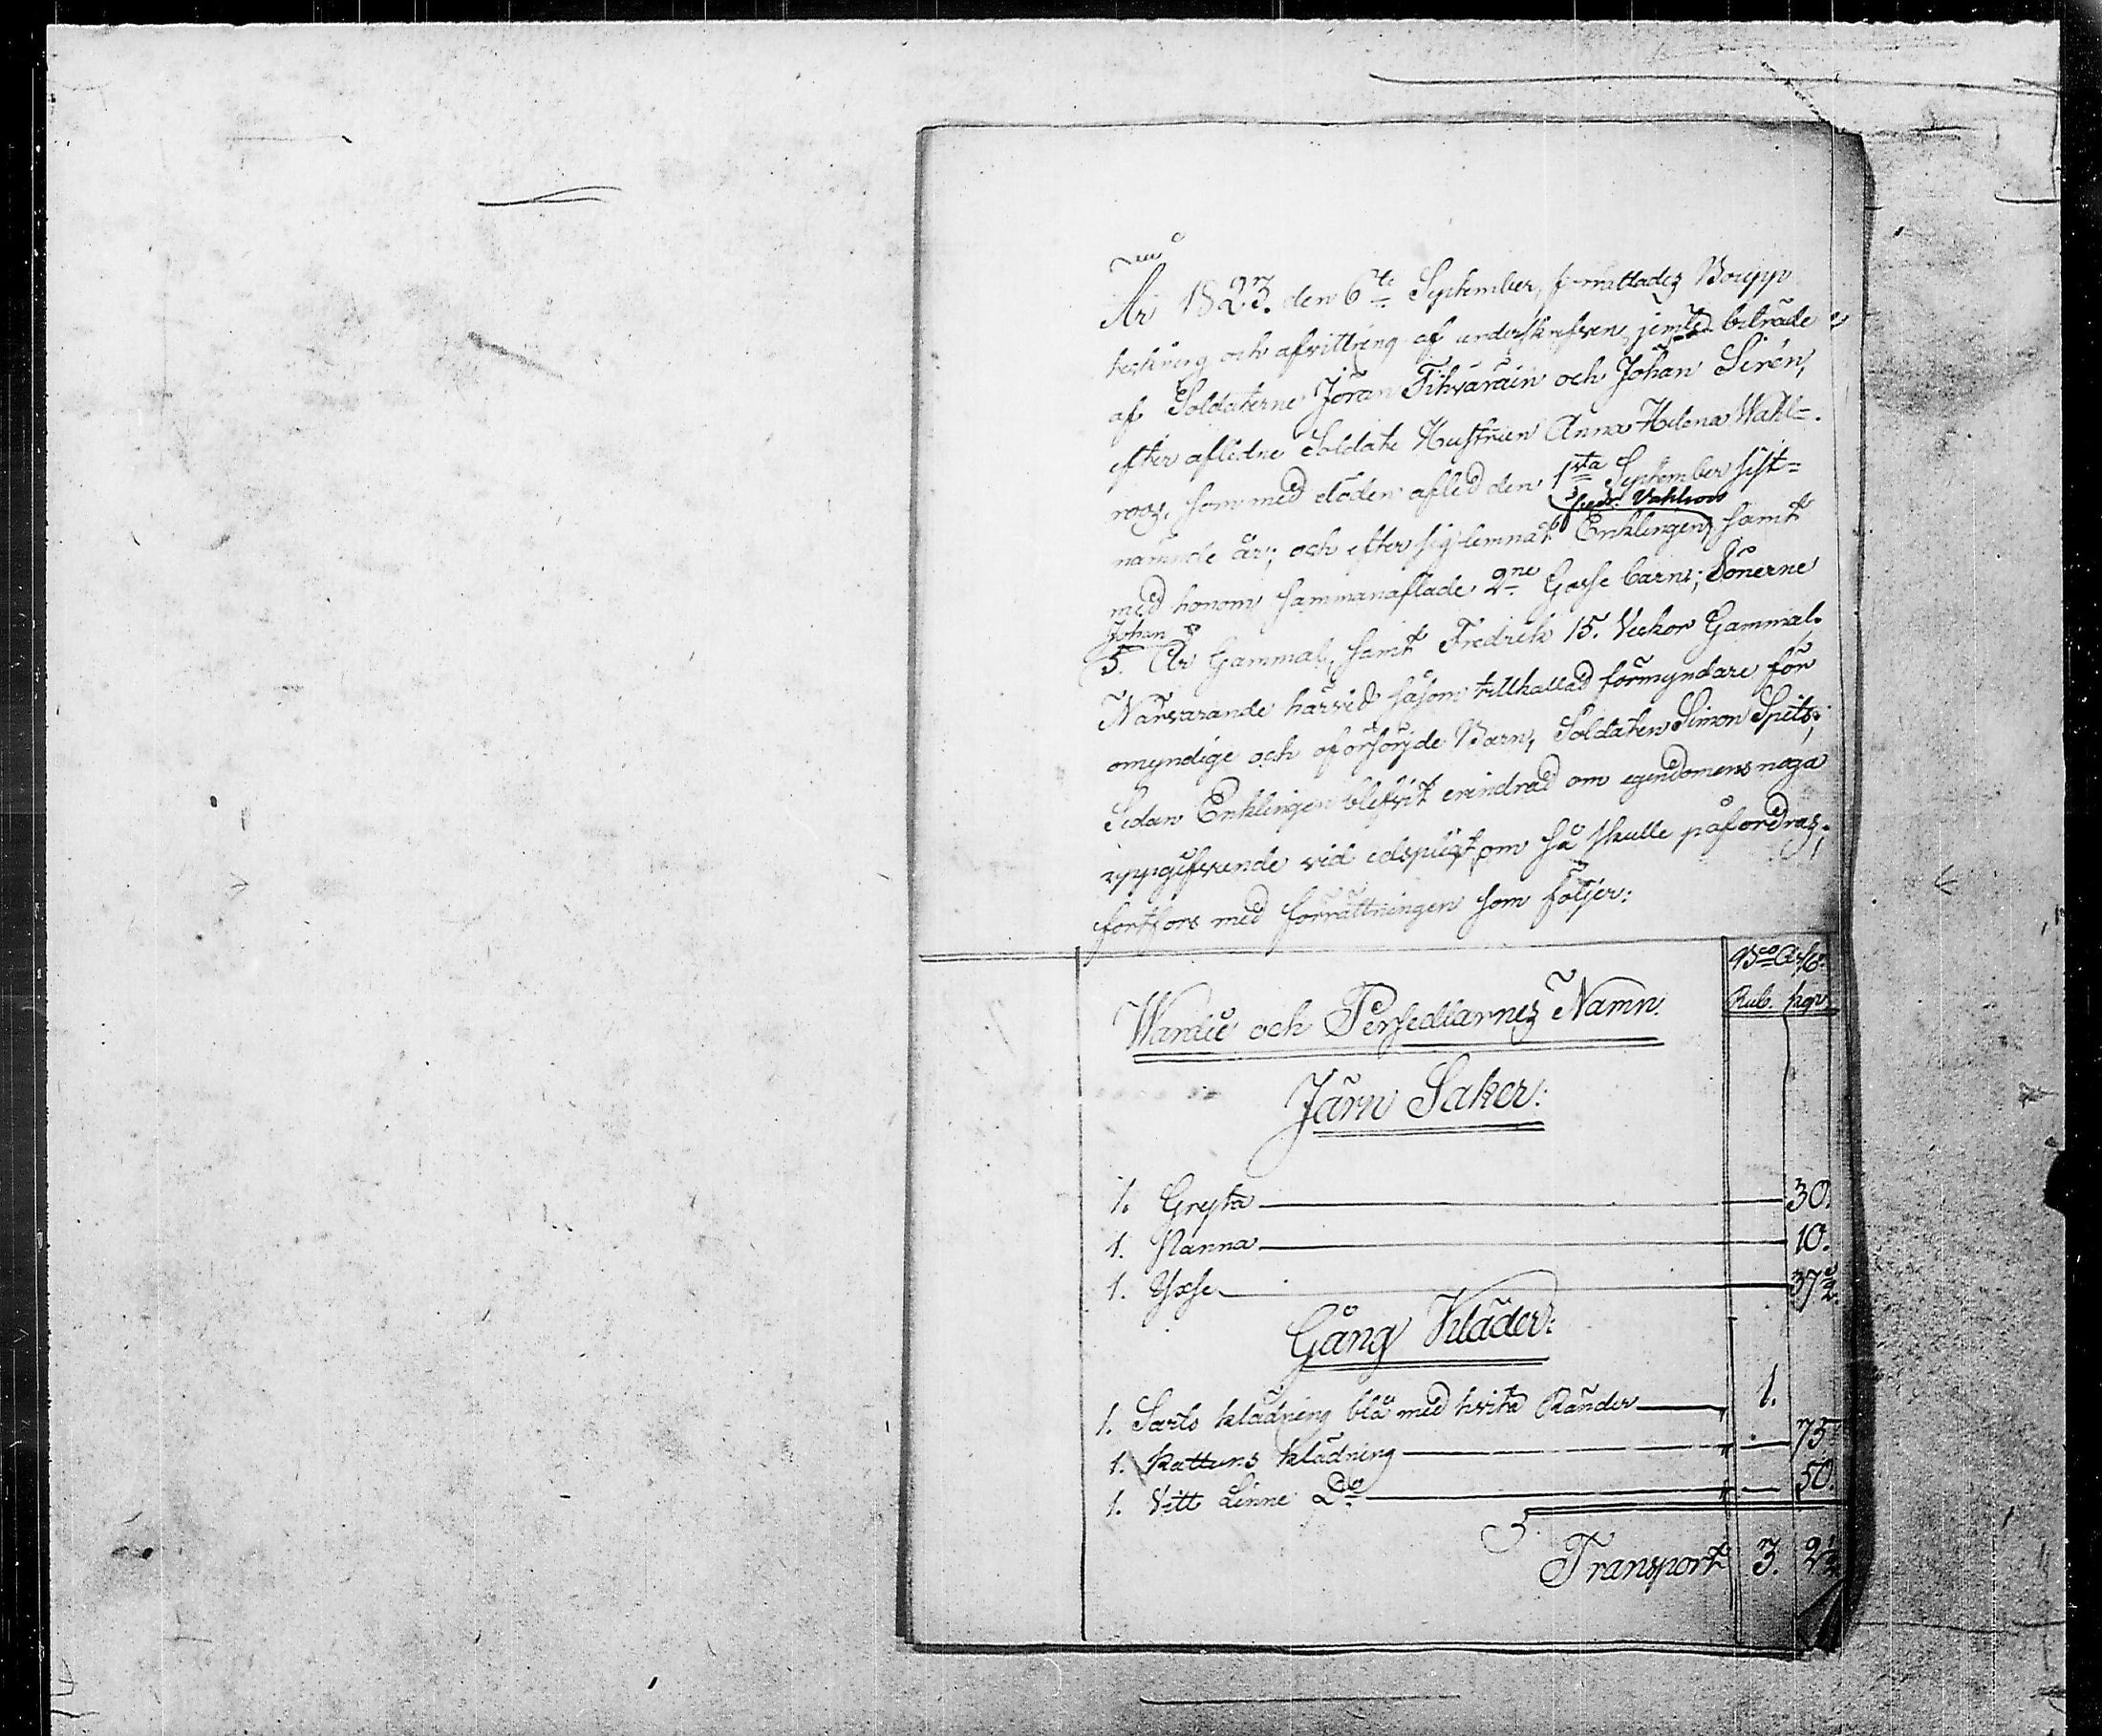 År 1823. den 6te September, förrättades Boupp
tekning och afvittring af underskrefven, jemte biträde
af Soldaterne Jöran Tihvarain och Johan Sirén,
efter aflidne Soldats Hustrun Anna Helena Wahl=
roos, som med döden afled den 1sta September sist=
Vahlroos
nämnde år; och efter sig lemnat Enklingen samt
med honom sammanaflade 2ne Gosse barn; Sönerne
Johan
5. År Gammal, samt Fredrik 15. Veckor Gammal.
Närvarande härvid såsom tillkallad förmyndare för
omyndige och oförsörjde Barn, Soldaten Simon Spits;
Sedan Enklingen blifvit erindrad om egendomens noga
uppgifvende vid edspligt, om så skulle påfordras;
fortfors med förrättningen som följer:
Bco Ass:
Rub. kop
Wärdie och Persedlarnes Namn.
Järn Saker:
1. Gryta 30.
1. Panna 10.
1. Yxe 37½
Gång Kläder:
1. Sarts klädning blå med hvita Ränder " 1.
1. Kattuns klädning " 75.
1. Vitt Linne Do " 50.
Transport 3. 2½